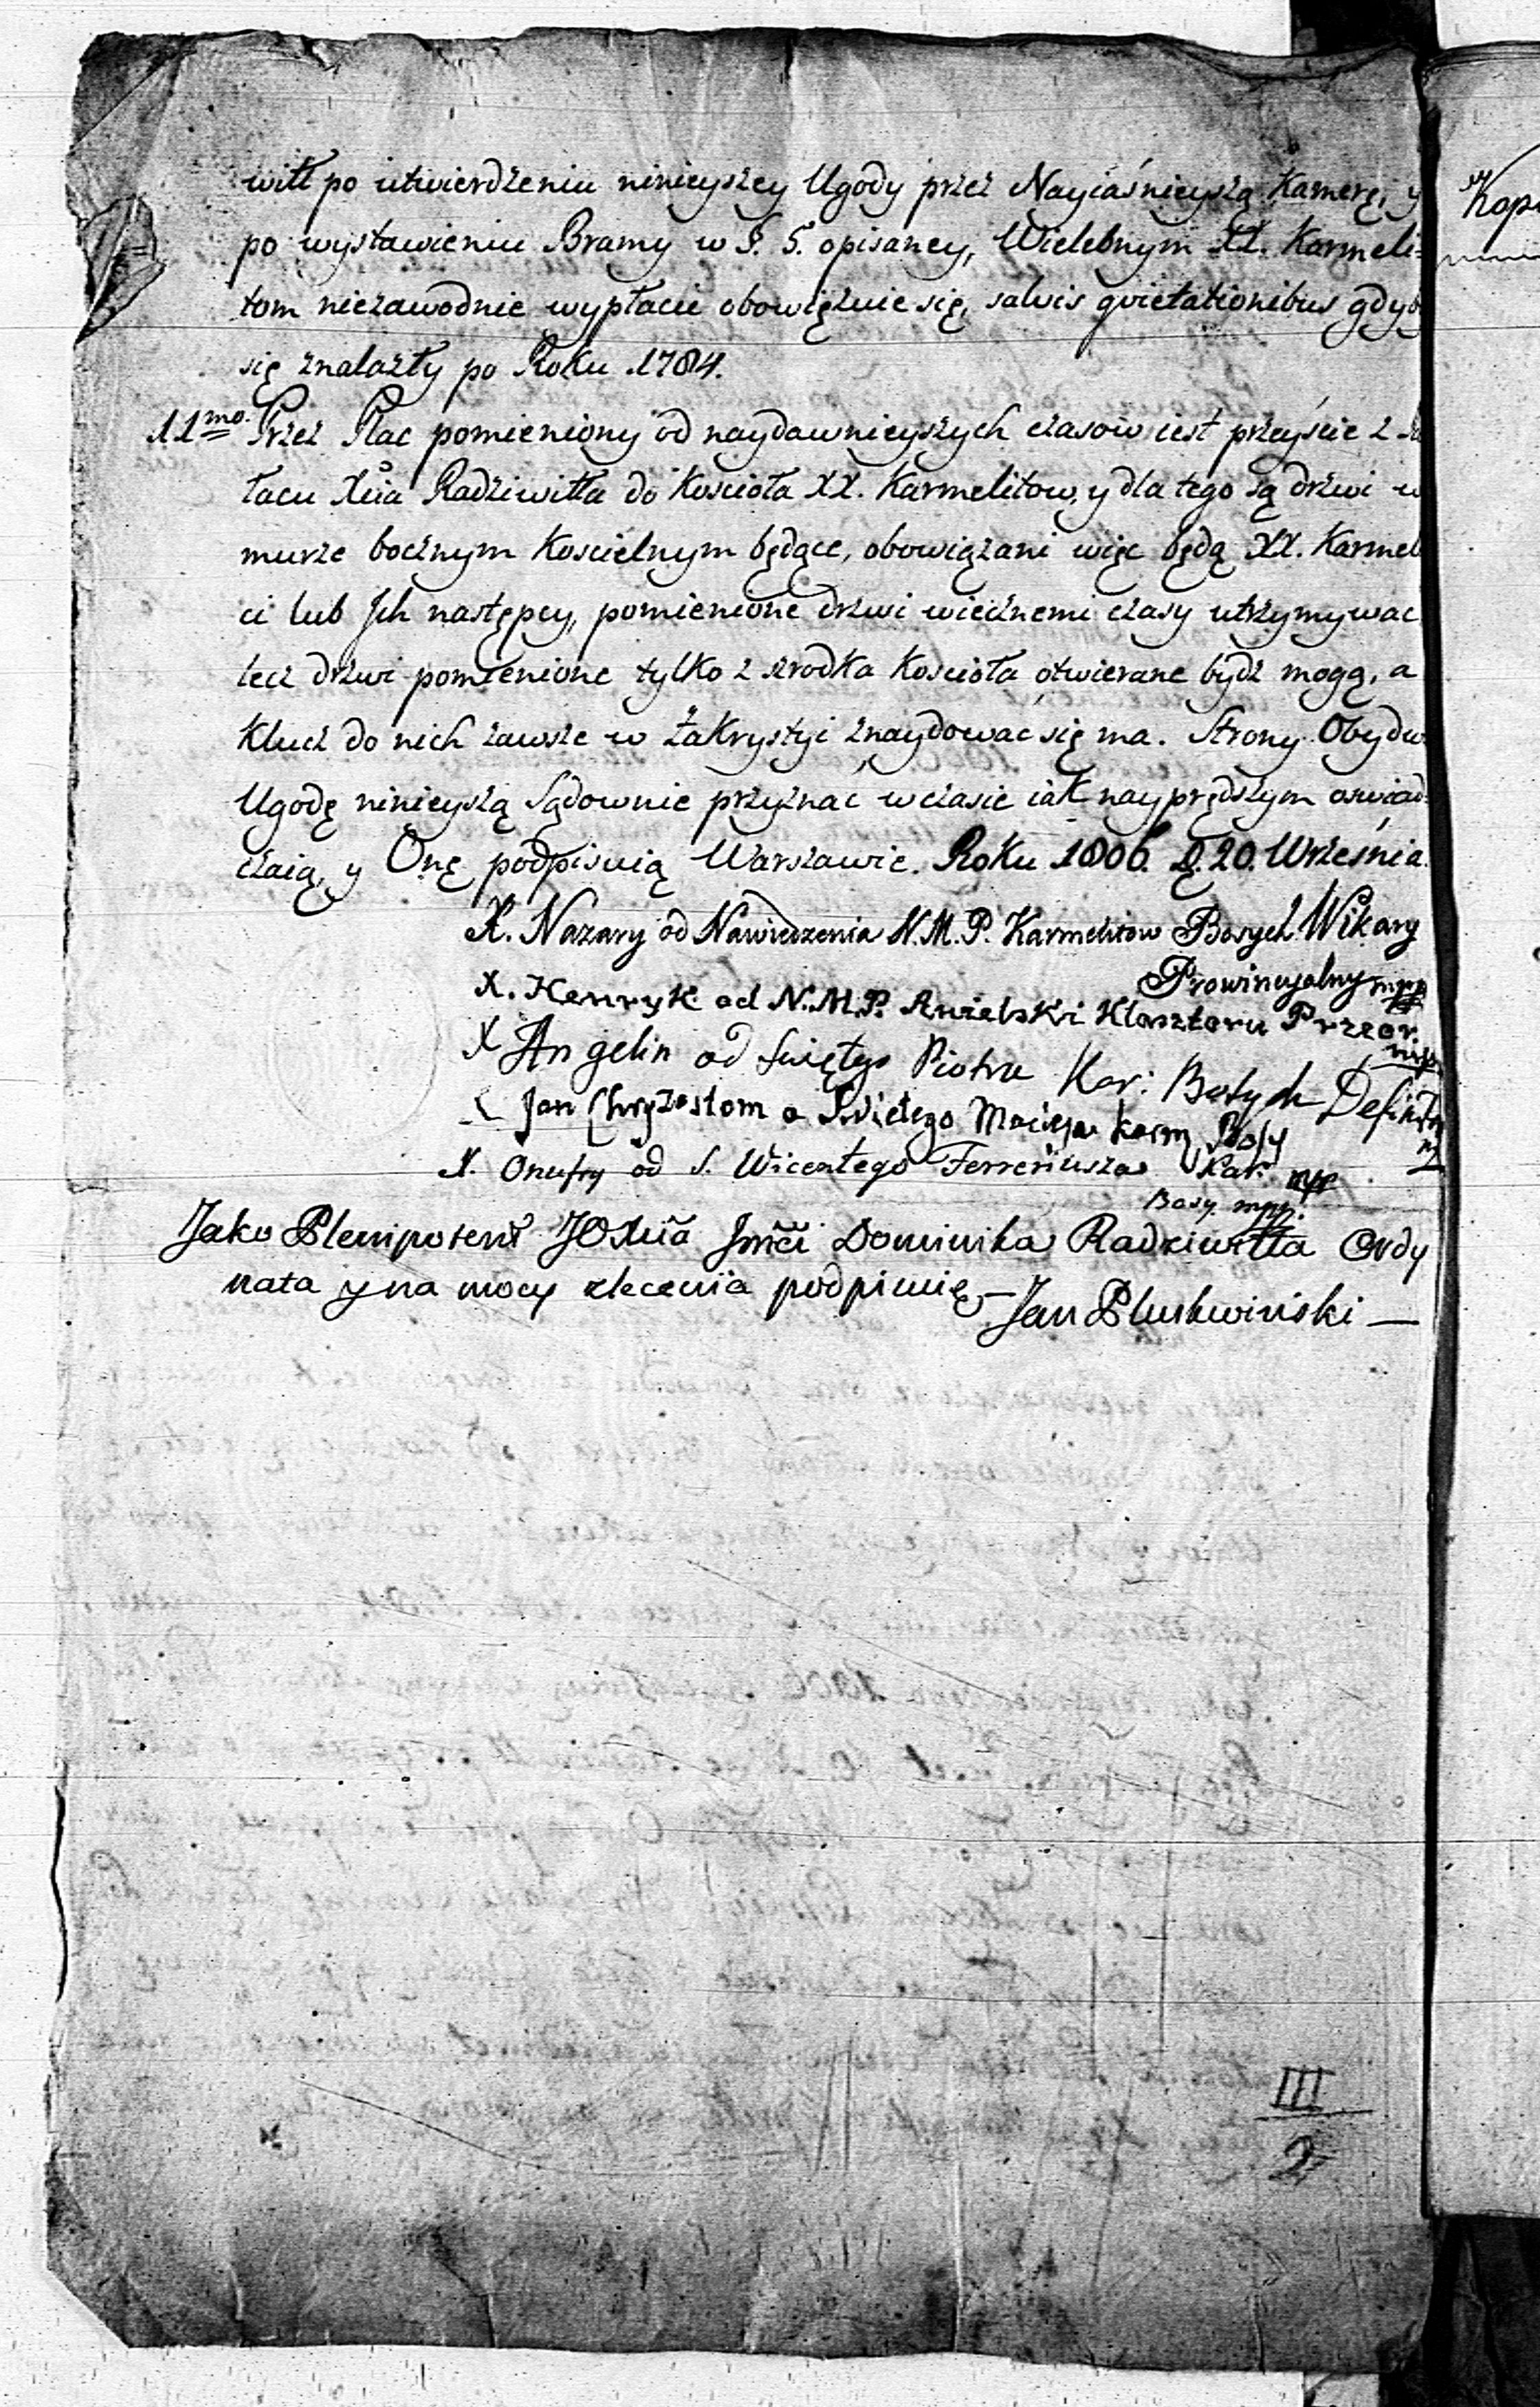 wiłł po utwierdzeniu ninieyszey Ugody przez Nayiaśnieyszą Kamerę, y
po wystawieniu Bramy w §. 5. opisaney, Wielebnym XX. Karmeli-
tom niezawodnie wypłacić obowięzuie się, salvis quietationibus gdyb
się znalazły po Roku 1784.
11mo. Przez Plac pomieniony od naydawnieyszych czasow iest przeyście z
łacu Xcia Radziwiłła do Koscioła XX. Karmelitow, y dla tego są drzwi w
murze bocznym Koscielnym będące, obowiązani więc będą XX. Karmel
ci lub Jch następcy, pomienione drzwi wiecznemi czasy utrzymywac
lecz drzwi pomienione tylko z szrodka Koscioła otwierane bydz mogą, a
Klucz do nich zawsze w Zakrystyi znaydowac się ma. Strony Obydw
Ugodę ninieyszą Sądownie przyznać w czasie iak nayprędszym oswiad-
czaią, y Onę podpisuią w Warszawie. Roku 1806. D. 20. Września.
X. Nazary od Nawiedzenia N.M.P. Karmelitow Bosych Wikary
Prowincyalny mpp
X. Henryk od N.M.P. Anielski Klasztoru Przeor.
mp
X Angelin od Swiętego Piotra Kar: Bosych Definit
X Jan Chryzostom o Swietego Macieja karm Bosy
mpp
X. Onufry od S. Wicentego Ferreriusza Kar:
Bosy mpp.
Jako Plenipotent JOXcia Jmci Dominika Radziwiłła Ordy
nata y na mocy zlecenia podpisuię — Jan Pluskwiński —
III
2
Kop